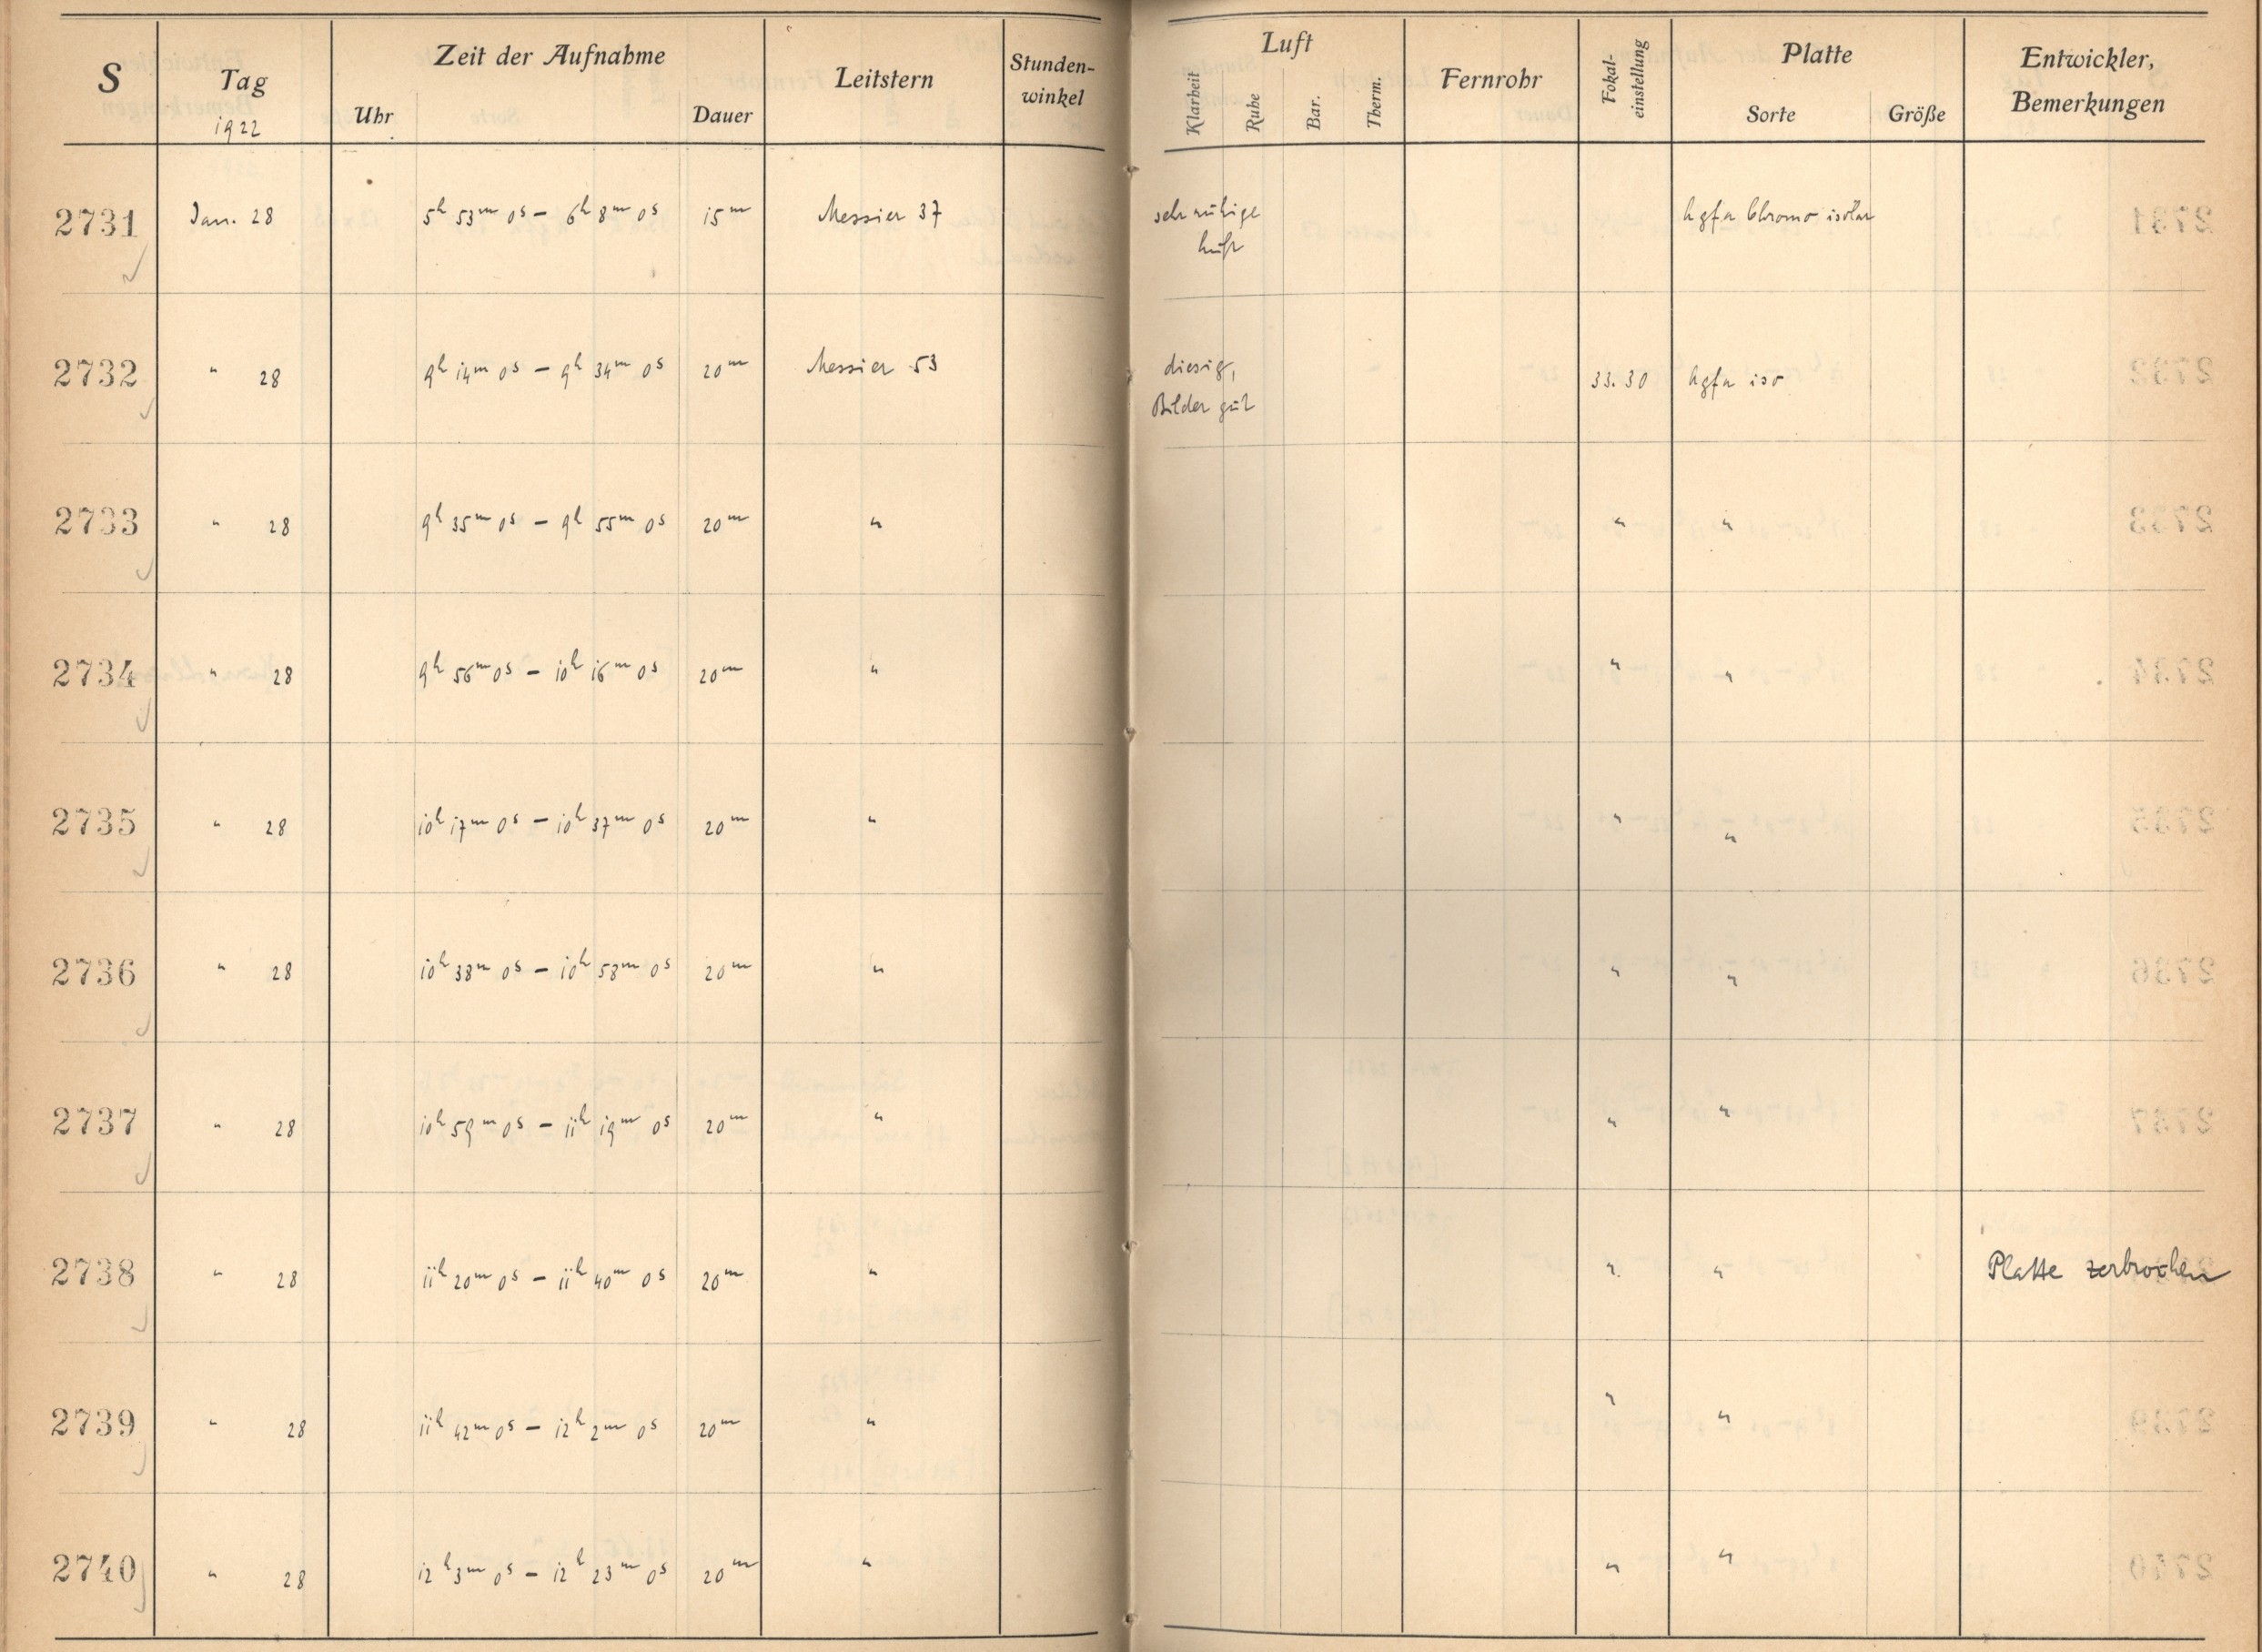 S Tag 1922 Zeit der Aufnahme Uhr Dauer Leitstern Stunden-winkel Luft Klarheit Ruhe Bar. Therm. Fernrohr Fokal-einstellung Platte Sorte Größe Entwickler, Bemerkungen
2731 Jan. 28 5h 53m 0s – 6h 8m 0s 15m Messier 37 sehr ruhige Luft Agfa Chromo isolar
2732 " 28 9h 14m 0s – 9h 34m 0s 20m Messier 53 diesig, Bilder gut 33.30 Agfa iso
2733 " 28 9h 35m 0s – 9h 55m 0s 20m " " "
2734 " 28 9h 56m 0s – 10h 16m 0s 20m " " "
2735 " 28 10h 17m 0s – 10h 37m 0s 20m " " "
2736 " 28 10h 38m 0s – 10h 58m 0s 20m " " "
2737 " 28 10h 59m 0s – 11h 19m 0s 20m " " "
2738 " 28 11h 20m 0s – 11h 40m 0s 20m " " " Platte zerbrochen
2739 " 28 11h 42m 0s – 12h 2m 0s 20m " " "
2740 " 28 12h 3m 0s – 12h 23m 0s 20m " " "